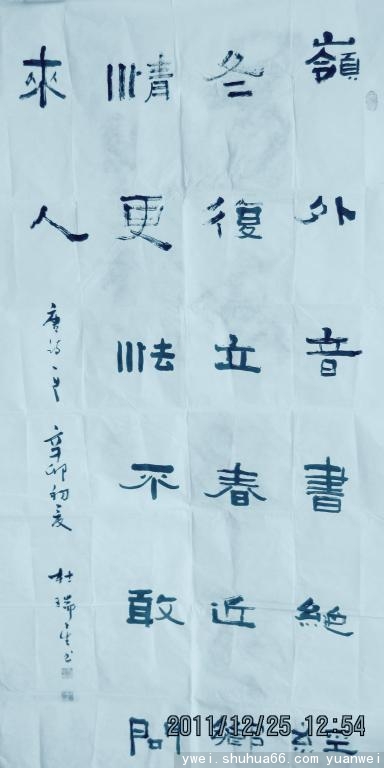 嶺外音書絕經
冬復立春近鄉
情更怯不敢問
來人
唐詩一首 辛卯初夏 杜瑞生书
2011/12/25 12:54
ywei.shuhua66.com yuanwei